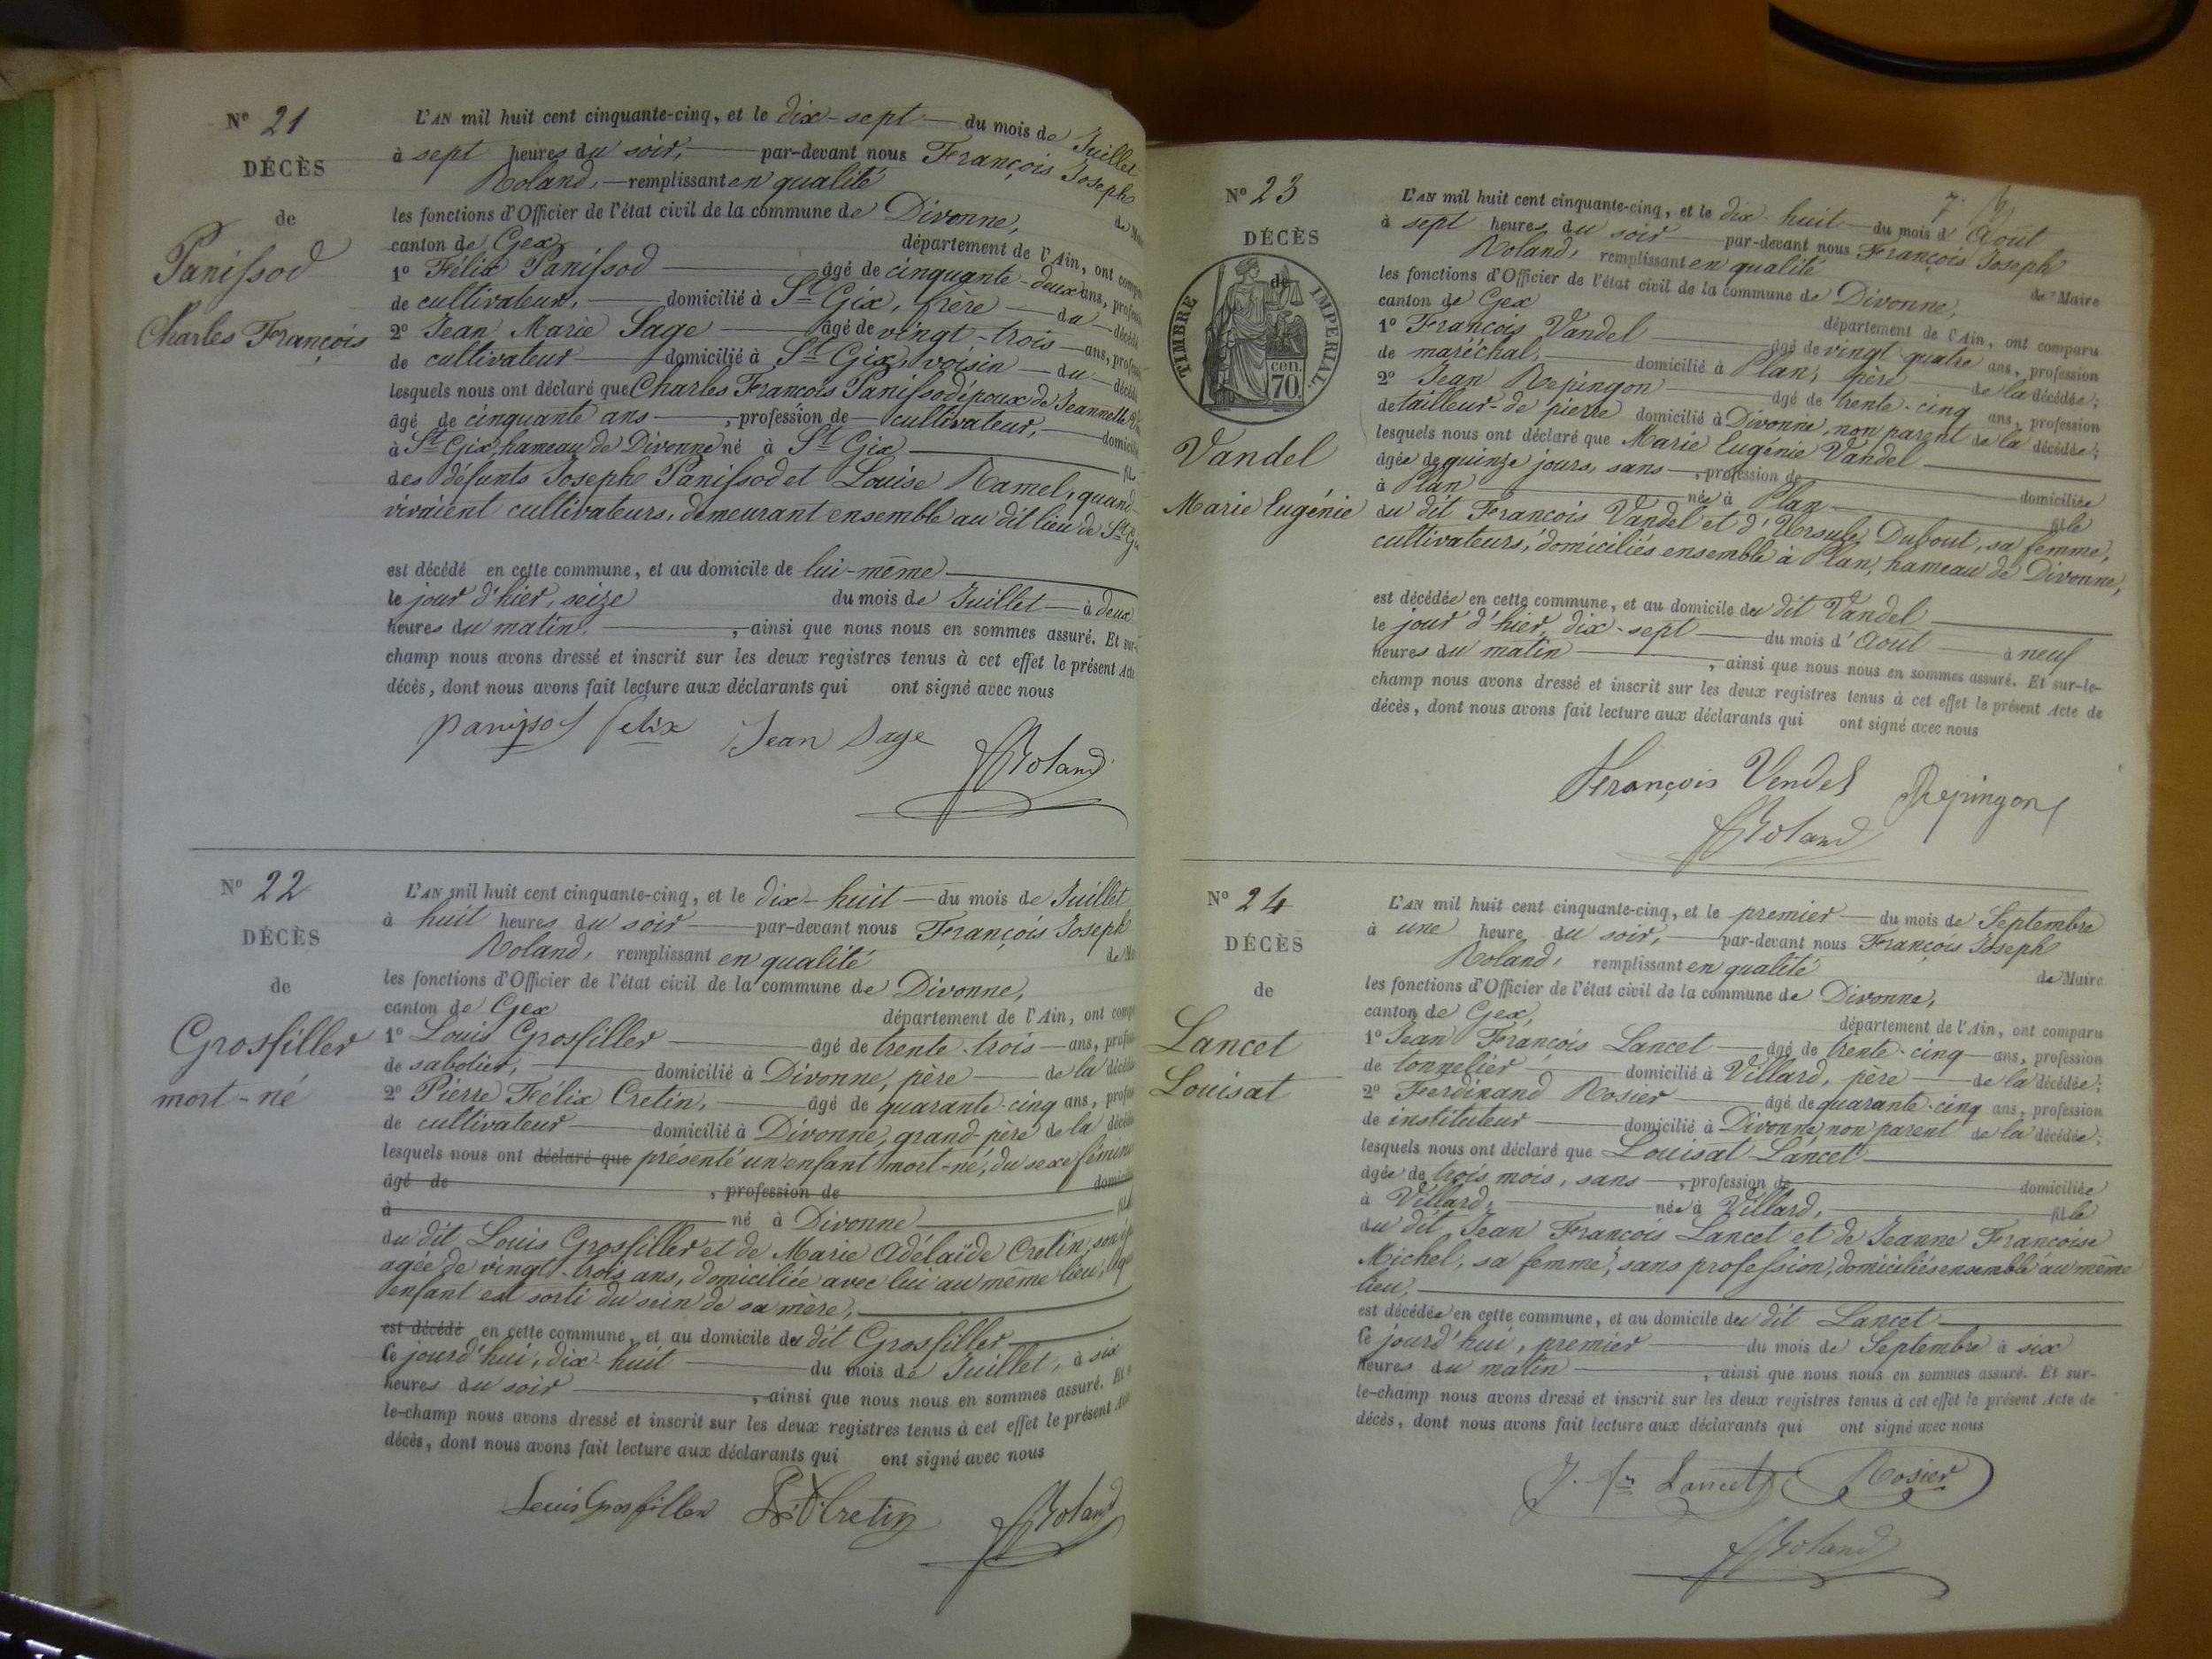 N° 21
DÉCÈS
de
Panissod
Charles François
L'AN mil huit cent cinquante-cinq, et le dix-sept du mois de Juillet
à sept heures du soir, par-devant nous François Joseph
Roland, remplissant en qualité de
les fonctions d'Officier de l'état civil de la commune de Divonne,
canton de Gex département de l'Ain, ont
1° Félix Panissod âgé de cinquante-deux ans,
de cultivateur, domicilié à St Gix, frère du
2° Jean Marie Sage âgé de vingt-trois ans,
de cultivateur domicilié à St Gix, voisin du
lesquels nous ont déclaré que Charles François Panissod époux de Jeannette
âgé de cinquante ans, profession de cultivateur,
à St Gix, hameau de Divonne né à St Gix
des défunts Joseph Panissod et Louise Ramel, quand
vivaient cultivateurs, demeurant ensemble au dit lieu de St
est décédé en cette commune, et au domicile de lui-même
le jour d'hier, seize du mois de Juillet à deux
heures du matin, ainsi que nous nous en sommes assuré. Et
champ nous avons dressé et inscrit sur les deux registres tenus à cet effet le présent
décès, dont nous avons fait lecture aux déclarants qui ont signé avec nous
panissod felix Jean Sage Roland
N° 22
DÉCÈS
de
Grosfiller
mort-né
L'AN mil huit cent cinquante-cinq, et le dix-huit du mois de Juillet
à huit heures du soir par-devant nous François Joseph
Roland, remplissant en qualité de
les fonctions d'Officier de l'état civil de la commune de Divonne,
canton de Gex département de l'Ain, ont
1° Louis Grosfiller âgé de trente-trois ans,
de sabotier, domicilié à Divonne, père de la
2° Pierre Félix Cretin, âgé de quarante-cinq ans,
de cultivateur domicilié à Divonne, grand-père de la
lesquels nous ont déclaré que présenté un enfant mort-né, du sexe féminin
âgé de , profession de
à né à Divonne
du dit Louis Grosfiller et de Marie Adélaïde Cretin,
agée de vingt-trois ans, domiciliée avec lui au même lieu,
enfant est sorti du sein de sa mère,
est décédé en cette commune, et au domicile du dit Grosfiller
Ce jourd'hui, dix-huit du mois de Juillet, à six
heures du soir, ainsi que nous nous en sommes assuré.
le-champ nous avons dressé et inscrit sur les deux registres tenus à cet effet le présent
décès, dont nous avons fait lecture aux déclarants qui ont signé avec nous
Louis Grosfiller Cretin Roland
N° 23
DÉCÈS
de
TIMBRE IMPERIAL
70 cen.
Vandel
Marie Eugénie
L'AN mil huit cent cinquante-cinq, et le dix-huit du mois d'Août
à sept heures du soir par-devant nous François Joseph
Roland, remplissant en qualité de Maire
les fonctions d'Officier de l'état civil de la commune de Divonne,
canton de Gex département de l'Ain, ont comparu
1° François Vandel âgé de vingt-quatre ans, profession
de maréchal, domicilié à Plan, père de la décédée;
2° Jean Repingon âgé de trente-cinq ans, profession
de tailleur de pierre domicilié à Divonne, non parent de la décédée;
lesquels nous ont déclaré que Marie Eugénie Vandel
âgée de quinze jours, sans, profession de domiciliée
à Plan née à Plan fille
du dit François Vandel et d'Ursule Dubout, sa femme,
cultivateurs, domiciliés ensemble à Plan, hameau de Divonne,
est décédée en cette commune, et au domicile du dit Vandel
le jour d'hier, dix-sept du mois d'Août à neuf
heures du matin, ainsi que nous nous en sommes assuré. Et sur-le-
champ nous avons dressé et inscrit sur les deux registres tenus à cet effet le présent Acte de
décès, dont nous avons fait lecture aux déclarants qui ont signé avec nous
François Vendel Repingon
Roland
N° 24
DÉCÈS
de
Lancet
Louisat
L'AN mil huit cent cinquante-cinq, et le premier du mois de Septembre
à une heure du soir, par-devant nous François Joseph
Roland, remplissant en qualité de Maire
les fonctions d'Officier de l'état civil de la commune de Divonne,
canton de Gex, département de l'Ain, ont comparu
1° Jean François Lancet âgé de trente-cinq ans, profession
de tonnelier domicilié à Villard, père de la décédée;
2° Ferdinand Rosier âgé de quarante-cinq ans, profession
de instituteur domicilié à Divonne, non parent de la décédée;
lesquels nous ont déclaré que Louisat Lancet
âgée de trois mois, sans, profession de domiciliée
à Villard, née à Villard, fille
du dit Jean François Lancet et de Jeanne Françoise
Michel, sa femme, sans profession, domiciliés ensemble au même
lieu,
est décédée en cette commune, et au domicile du dit Lancet
Ce jourd'hui, premier du mois de Septembre à six
heures du matin, ainsi que nous nous en sommes assuré. Et sur-
le-champ nous avons dressé et inscrit sur les deux registres tenus à cet effet le présent Acte de
décès, dont nous avons fait lecture aux déclarants qui ont signé avec nous
J. fs Lancet Rosier
Roland